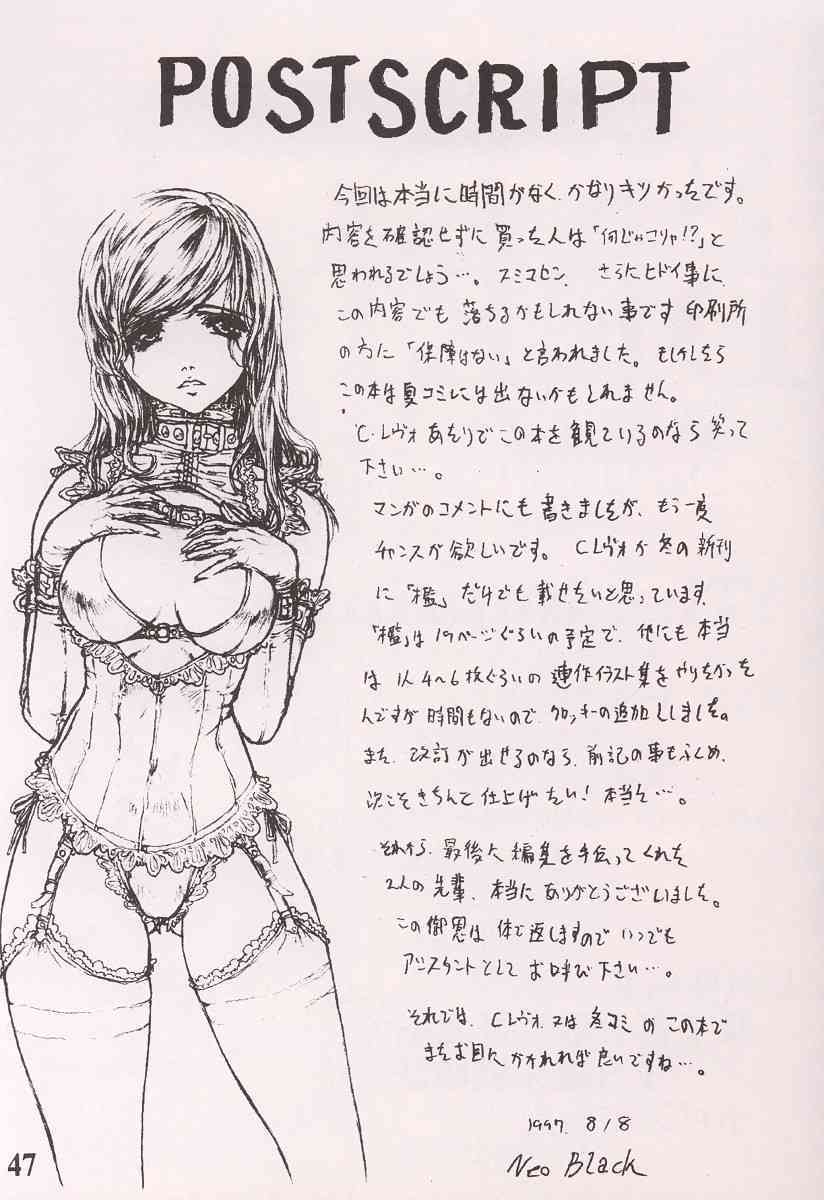 POSTSCRIPT
今回は本当に時間がなく、かなりキツかったです。
内容を確認せずに買った人は「何じゃコリャ!?」と
思われるでしょう…。スミマセン、さらにヒドイ事に、
この内容でも落ちるかもしれない事です 印刷所
の方に「保障はない」と言われました。もしかしたら
この本は夏コミには出ないかもしれません。
C.レヴォあたりでこの本を観ているのなら笑って
下さい…。
マンガのコメントにも書きましたが、もう一度
チャンスが欲しいです。Cレヴォか冬の新刊
に「檻」だけでも載せたいと思っています
「檻」は19ページぐらいの予定で、他にも本当
は1人4〜6枚ぐらいの連作イラスト集をやりたかった
んですが時間もないので、クロッキーの追加にしました。
また、改訂が出せるのなら、前記の事もふくめ、
次こそきちんと仕上げたい!本当に…。
それから、最後に編集を手伝ってくれた
2人の先輩、本当にありがとうございました。
この御恩は体で返しますのでいつでも
アシスタントとしてお呼び下さい…。
それでは、Cレヴォ、又は冬コミのこの本で
またお目にかかれれば良いですね…。
1997. 8/8
Neo Black
47